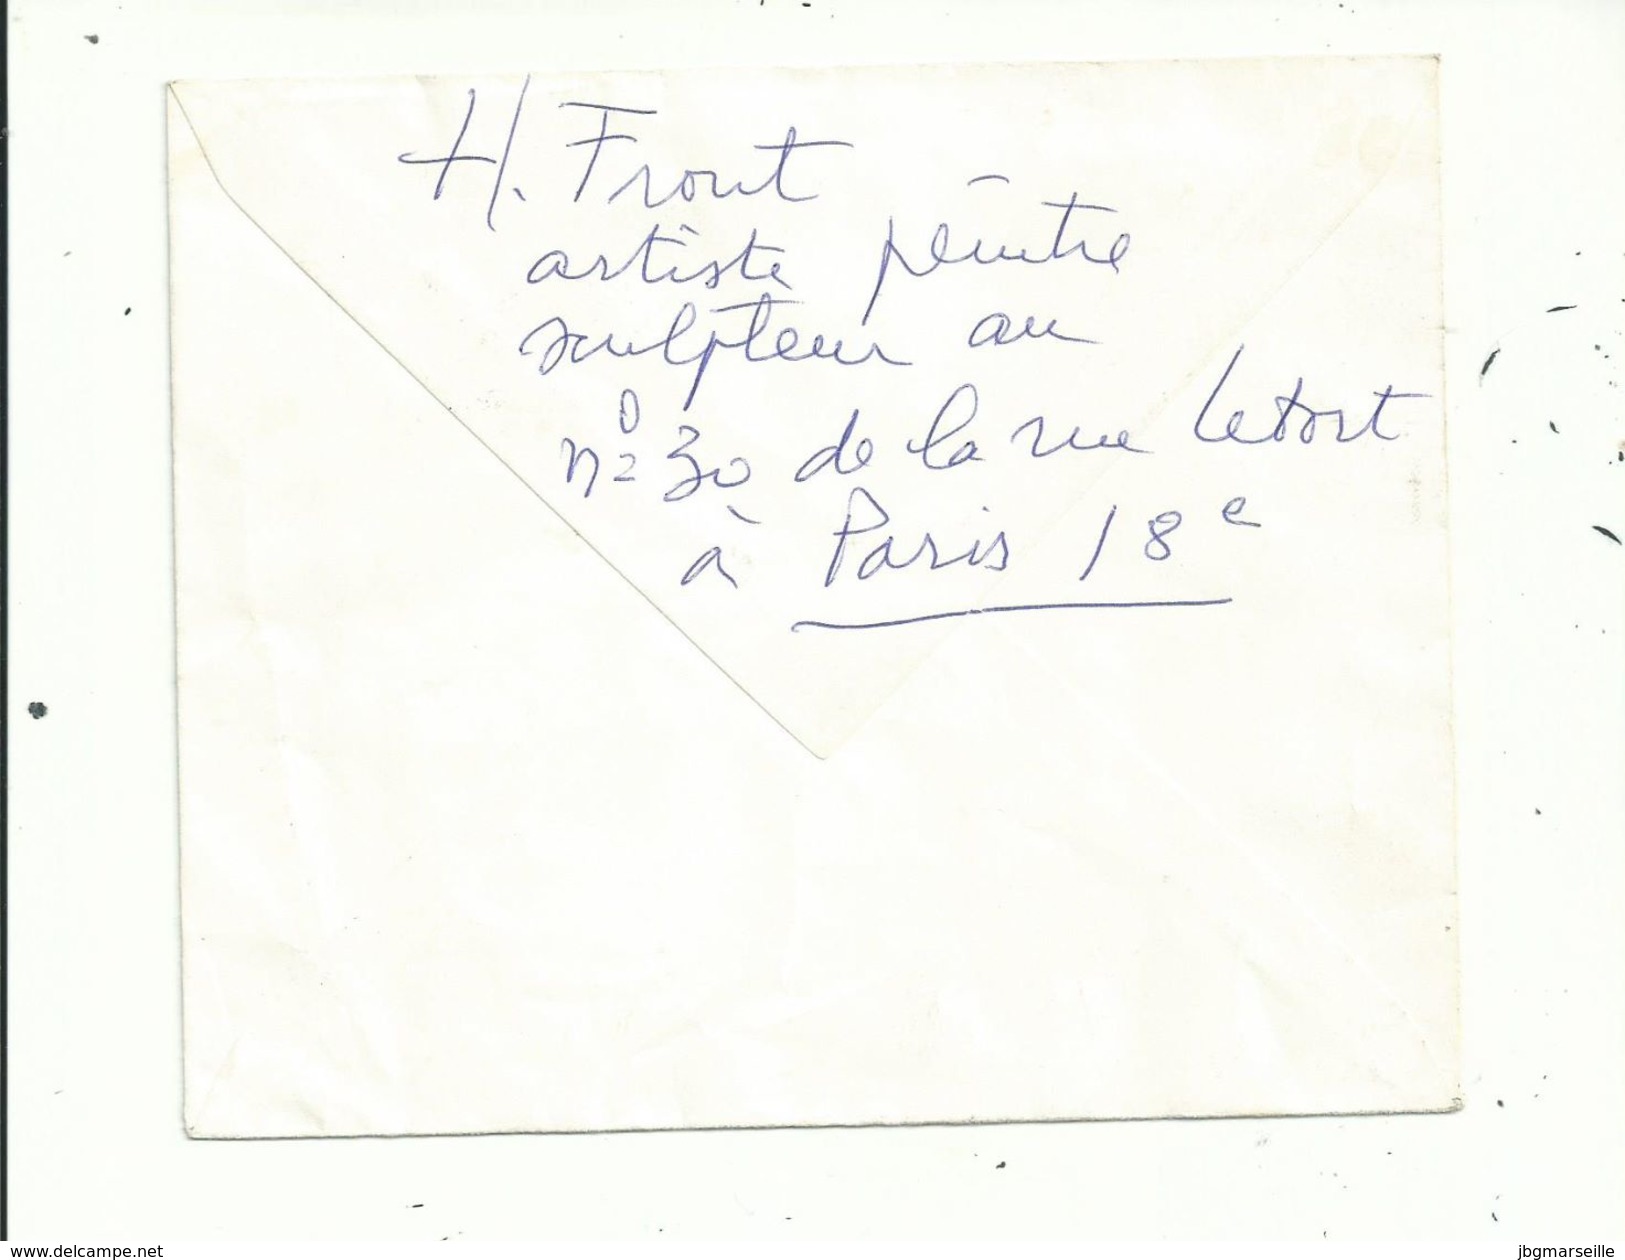 H. Frout
artiste peintre
sculpteur au
nº 30 de la rue Letort
à Paris 18e
www.delcampe.net
jbgmarseille